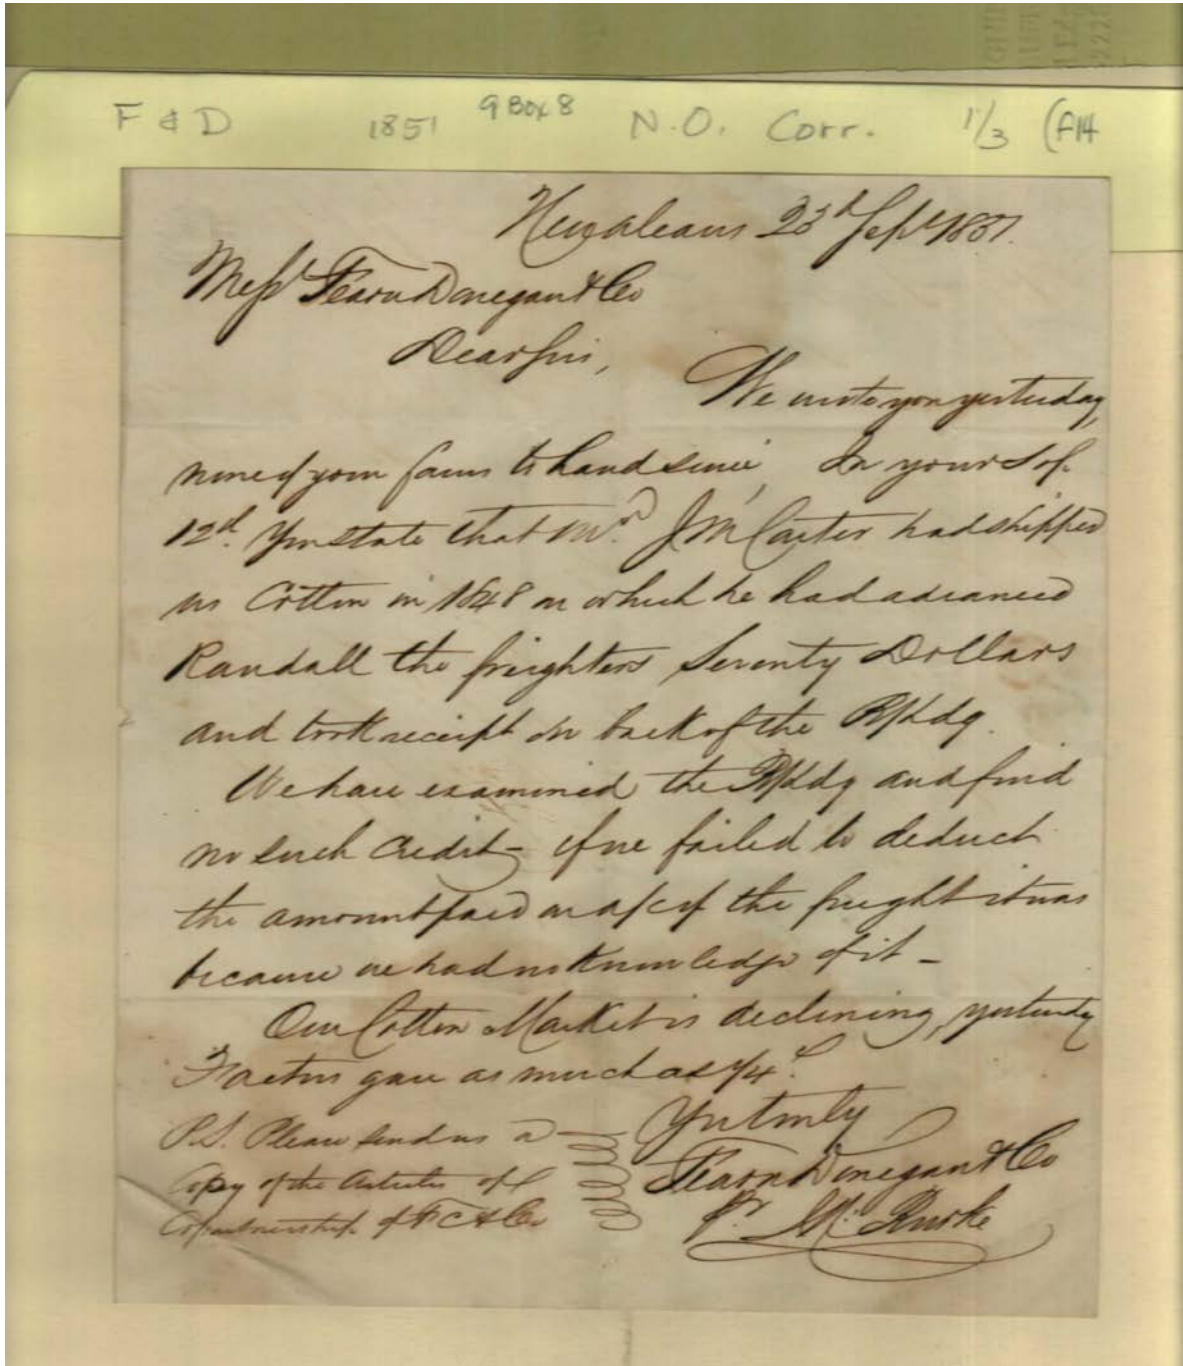 F & D 1851 9 Box 8 N.O. Corr. 1/3 (F14
New Orleans 23d Sept 1851.
Messrs Fearn Donegan & Co
Dear Sirs,
We wrote you yesterday,
none of your favors to hand since, In yours of
12th. You state that Mr. J M Carter had shipped
us Cotton in 1848 on which he had advanced
Randall the freighters Seventy Dollars
and took receipt on back of the B/Ldg.
We have examined the B/Ldg and find
no such Credit - if we failed to deduct
the amount paid on a/c of the freight it was
because we had no Knowledge of it -
Our Cotton Market is declining, yesterday
Factors gave as much as 1/4 c.
P.S. Please send us a
Copy of the Articles of
Copartnership of F C & Co
Yrs truly
Fearn Donegan & Co
Pr M. Burke